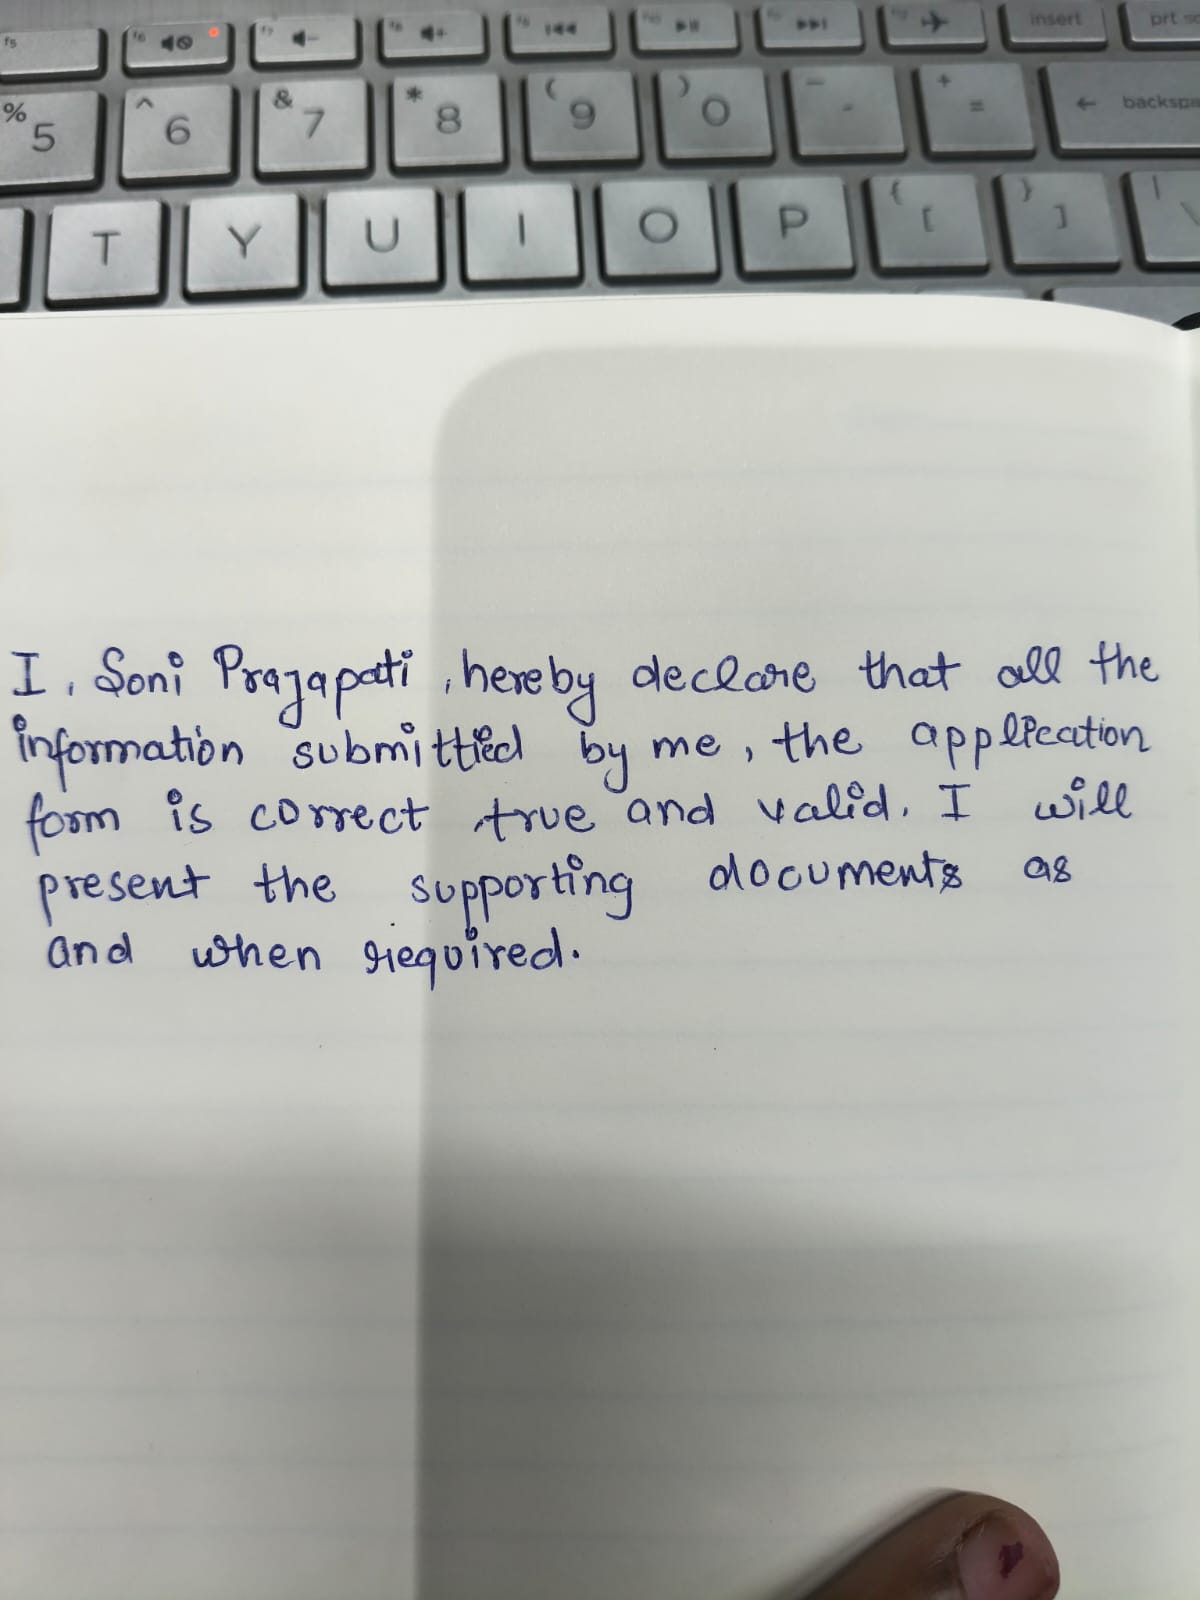 f5 f6 f7 f8 f9 f10 f11 f12 insert prt sc
% 5 ^ 6 & 7 * 8 ( 9 ) 0 - + = ← backspa
T Y U I O P { [ } ] | \
I, Soni Prajapati, hereby declare that all the
information submittied by me, the application
form is correct, true and valid. I will
present the supporting documents as
and when required.